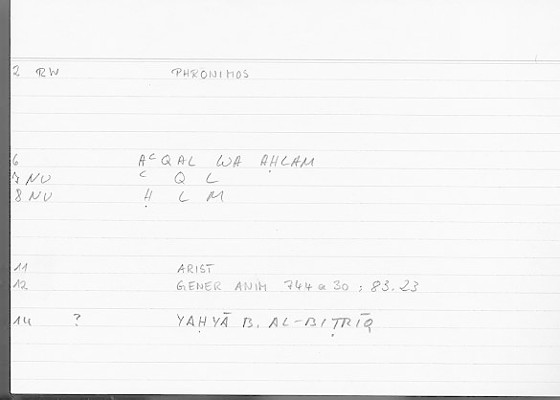 2 RW PHRONIMOS
6 AᶜQAL WA AḤLAM
7 NU ᶜ Q L
8 NU Ḥ L M
11 ARIST
12 GENER ANIM 744a30 ; 83.23
14 ? YAḤYĀ B. AL-BIṬRĪQ